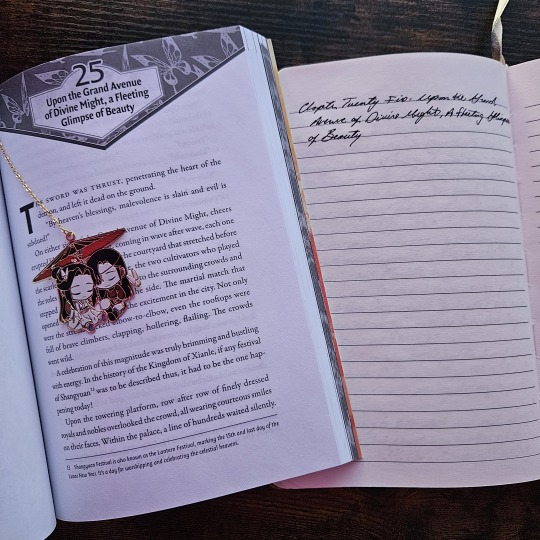 25
Upon the Grand Avenue
of Divine Might, a Fleeting
Glimpse of Beauty
THE SWORD WAS THRUST, penetrating the heart of the
demon, and left it dead on the ground.
"By heaven's blessings, malevolence is slain and evil is
subdued!"
On either side of the Grand Avenue of Divine Might, cheers
coming in wave after wave, each one
the courtyard that stretched before
the two cultivators who played
to the surrounding crowds and
stepped side. The martial match that
opened the excitement in the city. Not only
were the streets packed elbow-to-elbow, even the rooftops were
full of brave climbers, clapping, hollering, flailing. The crowds
went wild.
A celebration of this magnitude was truly brimming and bustling
with energy. In the history of the Kingdom of Xianle, if any festival
of Shangyuan¹³ was to be described thus, it had to be the one hap-
pening today!
Upon the towering platform, row after row of finely dressed
royals and nobles overlooked the crowd, all wearing courteous smiles
on their faces. Within the palace, a line of hundreds waited silently.
13 Shangyuan Festival is also known as the Lantern Festival, marking the 15th and last day of the
Lunar New Year. It's a day for worshipping and celebrating the celestial heavens.
Chapter Twenty Five: Upon the Grand
Avenue of Divine Might, A Fleeting Glimpse
of Beauty